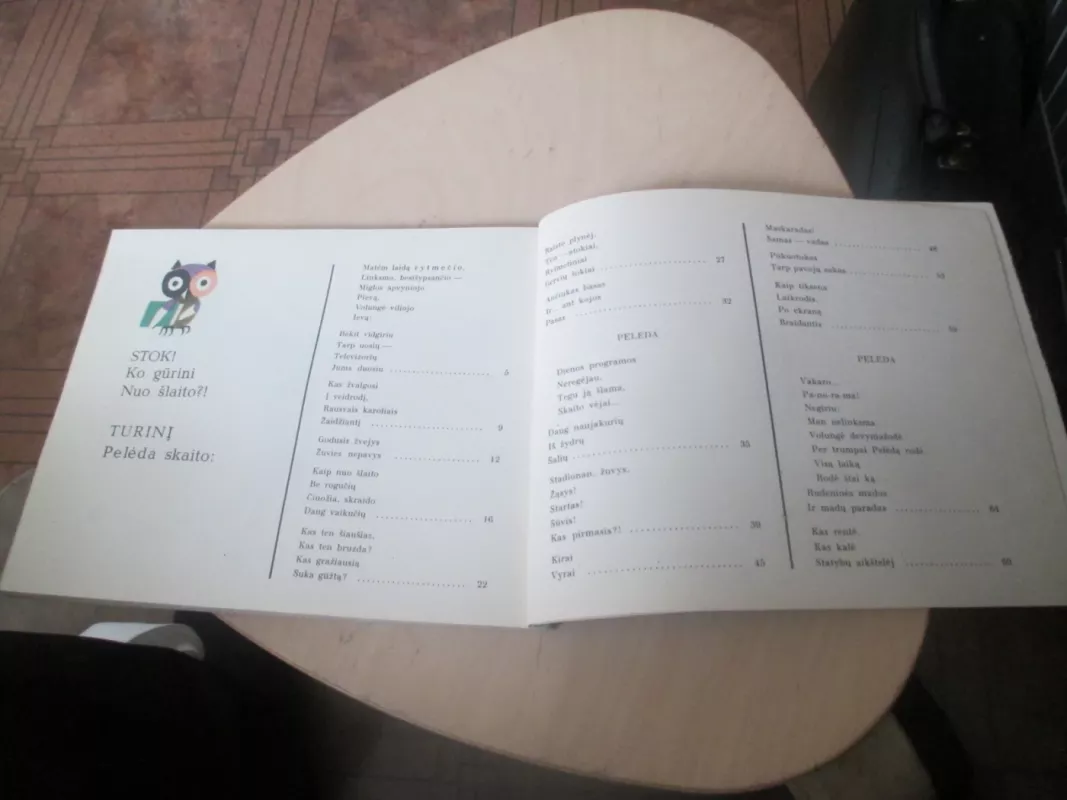 STOK!
Ko gūrini
Nuo šlaito?!
TURINĮ
Pelėda skaito:
Matėm laidą rytmečio,
Linksmo, besišypsančio —
Miglos spyryninjo
Pievą,
Volungė vilinjo
Ievą:
Bėkit vidgiriu
Tarp uosių —
Televizorių
Jums duosiu 5
Kas žvalgosi
Į veidrodį,
Rausvais karoliais
Žaidžiantį 9
Godusis žvejys
Žuvies nepavys 12
Kaip nuo šlaito
Be rogučių
Čiuožia, skraido
Daug vaikučių 16
Kas ten šiaušias,
Kas ten bruzda?
Kas gražiausią
Suka gūžtą? 22
Baisė plynėj,
stokiai,
Ryžmeliniai
Gervių šokiai 27
Ančiukas basas
Ir — ant kojos
Pasas 32
PELĖDA
Dienos programos
Neregėjau,
Tegu ją šlama,
Skaito vėjai...
Daug naujakurių
Iš žydrų
Salių 35
Stadionan, žuvys,
Žąsys!
Startas!
Šūvis!
Kas pirmasis?! 39
Kirai
Vyrai 45
Maskaradas!
Šamas — vadas 48
Piškuotukas
Tarp pavojų sukas 52
Kaip tiksena
Laikrodis
Po ekraną
Braidantis 59
PELĖDA
Vakaro...
Pa-no-ra-ma!
Negirtu
Man nelinksma
Volungė devynialedė
Per trumpai Pelėdą rodė
Visą laiką
Rodė šiai ką
Rudeninės mados
Ir madų paradas 64
Kas rentė
Kas kalė
Statybų aikštelėj 69